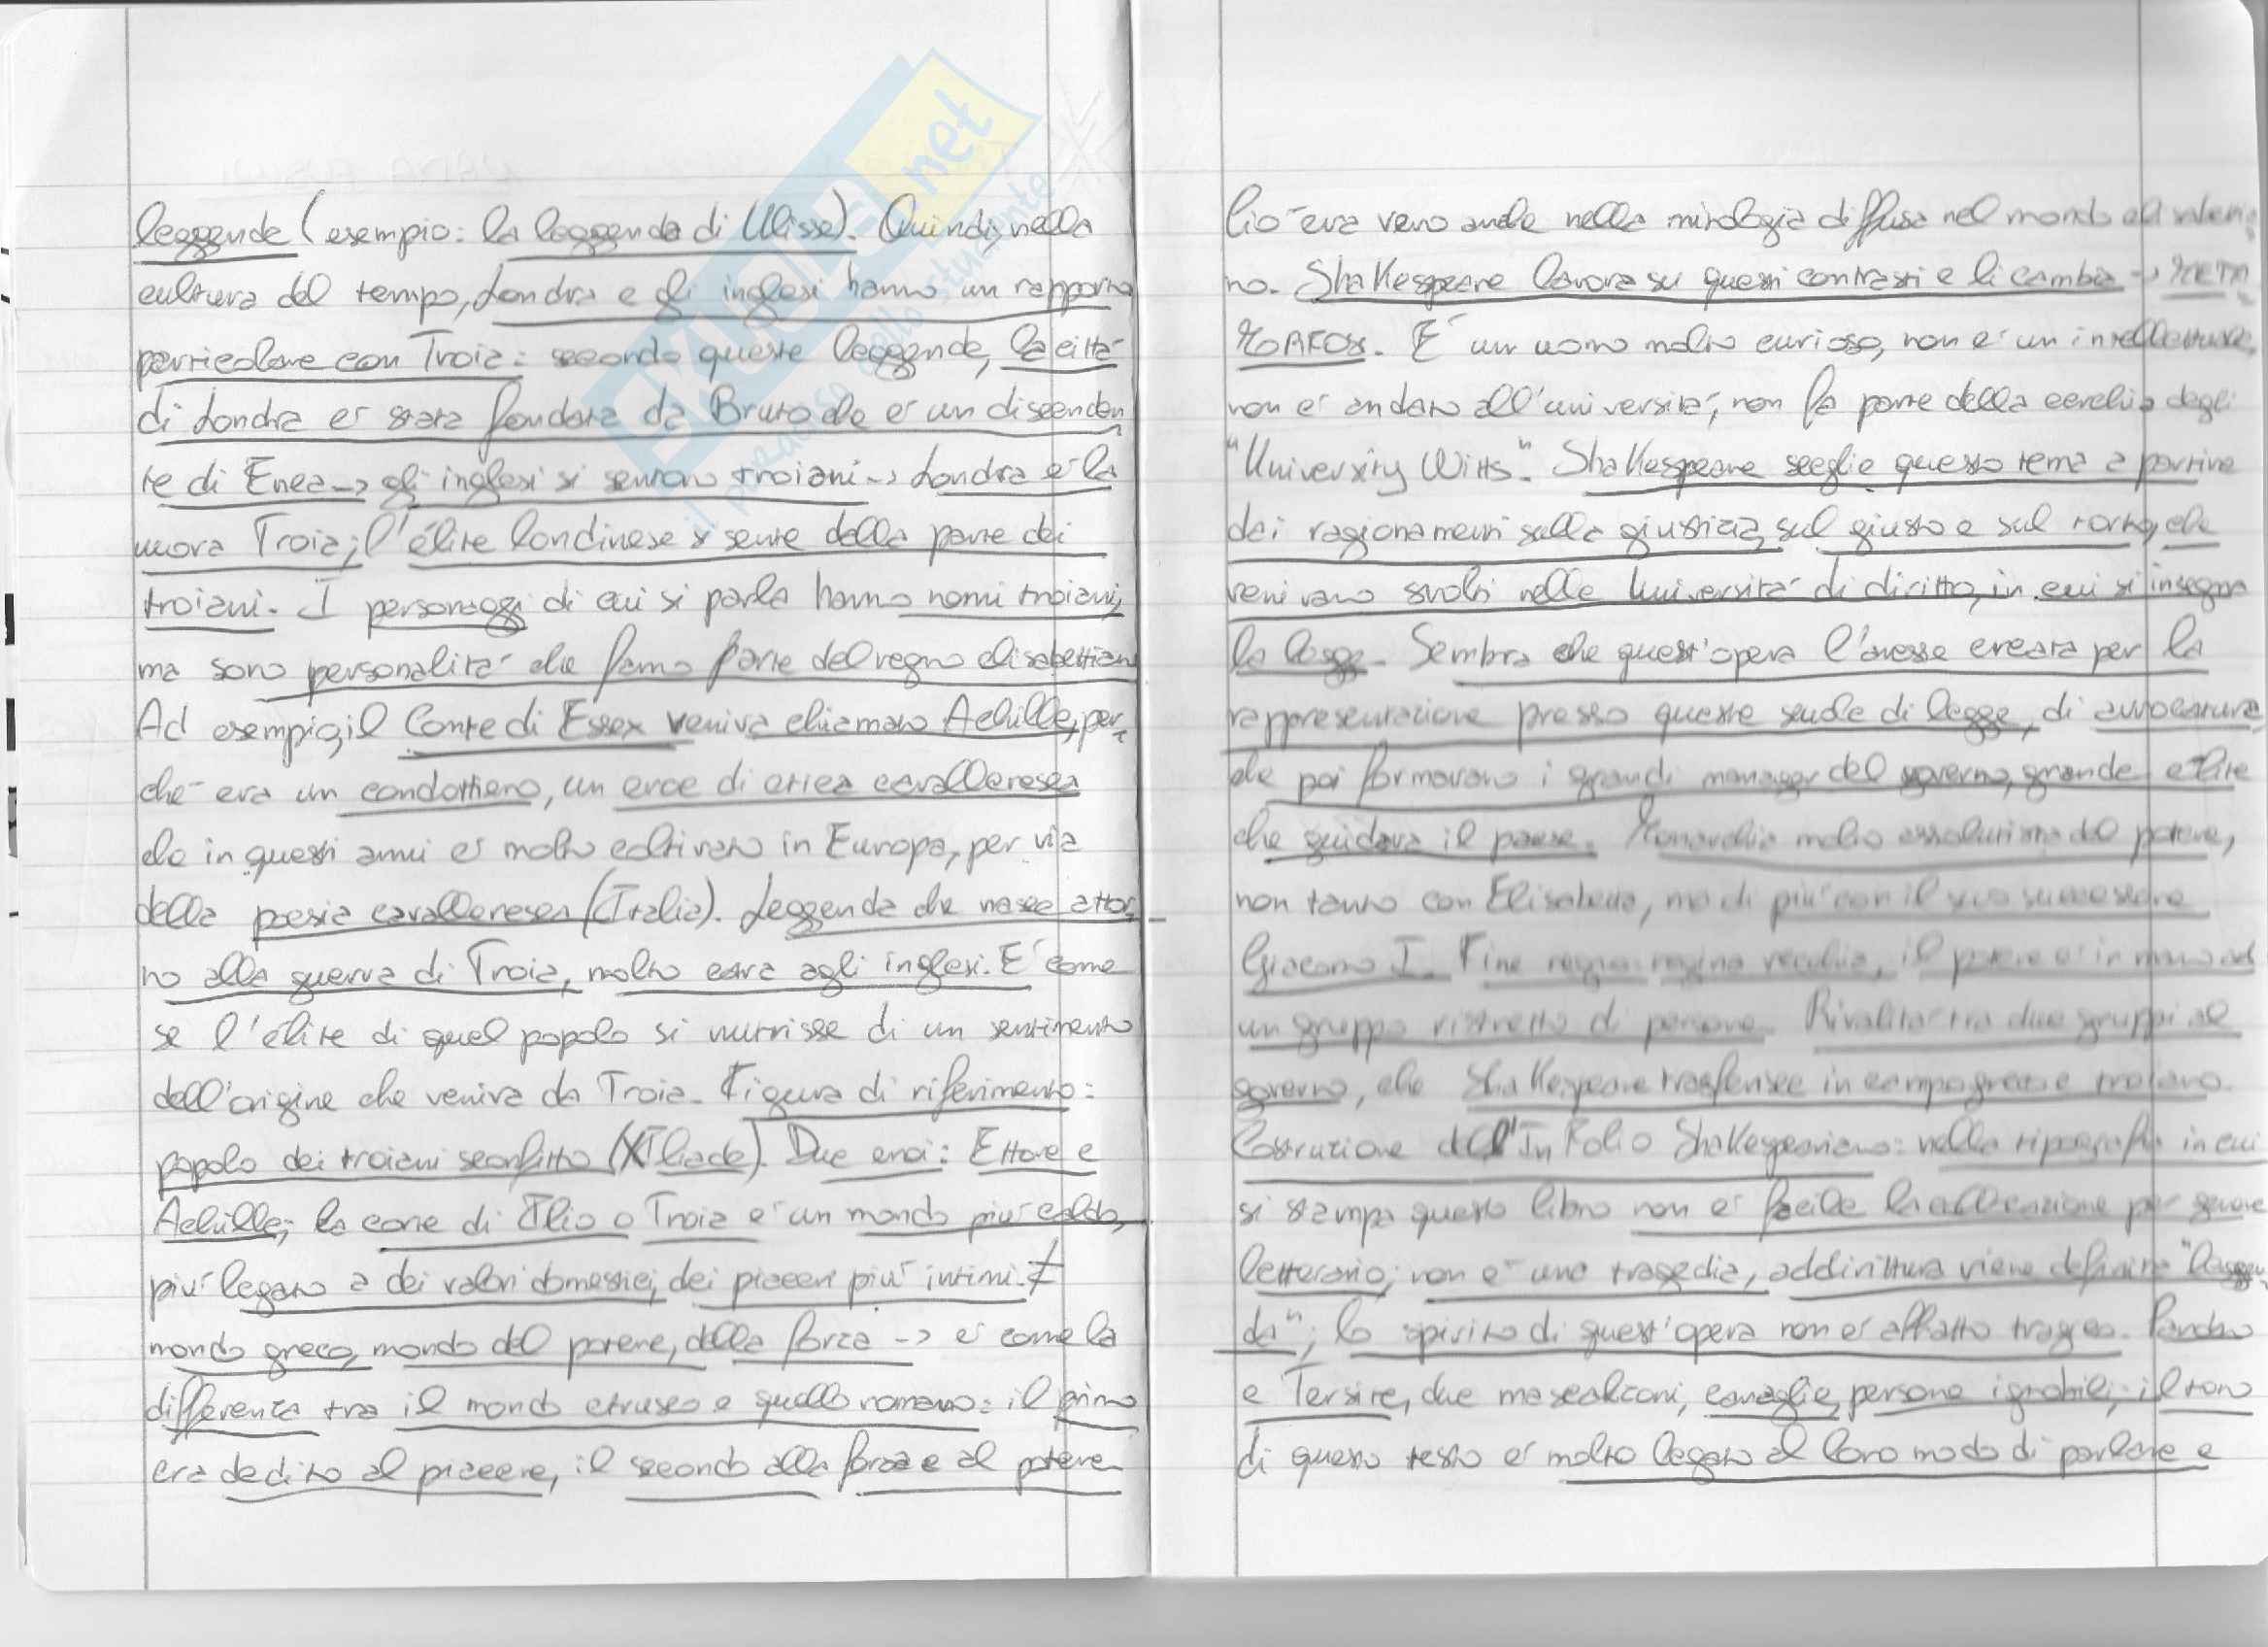 leggende (esempio: la leggenda di Ulisse). Quindi, nella
cultura del tempo, Londra e gli inglesi hanno un rapporto
particolare con Troia: secondo queste leggende, la città
di Londra é stata fondata da Bruto che é un discenden
te di Enea -> gli inglesi si sentono troiani -> Londra é la
nuova Troia; l'élite londinese si sente della parte dei
troiani. I personaggi di cui si parla hanno nomi troiani,
ma sono personalitá che fanno parte del regno elisabettiano
Ad esempio, il Conte di Essex veniva chiamato Achille, per
ché era un condottiero, un eroe di etica cavalleresca
che in questi anni é molto coltivato in Europa, per via
della poesia cavalleresca (Italia). Leggenda che nasce attor
no alla guerra di Troia, molto cara agli inglesi. É come
se l'élite di quel popolo si nutrisse di un sentimento
dell'origine che veniva da Troia. Figura di riferimento:
popolo dei troiani sconfitto (Iliade). Due eroi: Ettore e
Achille; la corte di Ilio o Troia é un mondo piú caldo,
piú legato a dei valori domestici, dei piaceri piú intimi. ≠
mondo greco, mondo del potere, della forza -> é come la
differenza tra il mondo etrusco e quello romano: il primo
era dedito al piacere, il secondo alla forza e al potere
Ció era vero anche nella mitologia diffusa nel mondo
no. Shakespeare lavora su questi contrasti e li cambia -> META
MORFOSI. É un uomo molto curioso, non é un intellettuale,
non é andato all'universitá, non fa parte della cerchia degli
"University Witts". Shakespeare sceglie questo tema a partire
dai ragionamenti sulla giustizia, sul giusto e sul torto, che
venivano svolti nelle Universitá di diritto, in cui si insegna
la legge. Sembra che quest'opera l'avesse creata per la
rappresentazione presso queste scuole di legge, di avvocatura,
che poi formavano i grandi manager del governo, grande élite
che guidava il paese. Monarchia molto assolutista del potere,
non tanto con Elisabetta, ma di piú con il suo successore
Giacomo I. Fine regno: regina vecchia, il potere é in mano ad
un gruppo ristretto di persone. Rivalitá tra due gruppi al
governo, che Shakespeare trasferisce in campo greco e troiano.
Costruzione dell'In Folio Shakespeariano: nella tipografia in cui
si stampa questo libro non é facile la collocazione per genere
letterario; non é una tragedia, addirittura viene definita "leggen
da"; lo spirito di quest'opera non é affatto tragico. Pandaro
e Tersite, due mascalzoni, canaglie, persone ignobili; il tono
di questo testo é molto legato al loro modo di parlare e